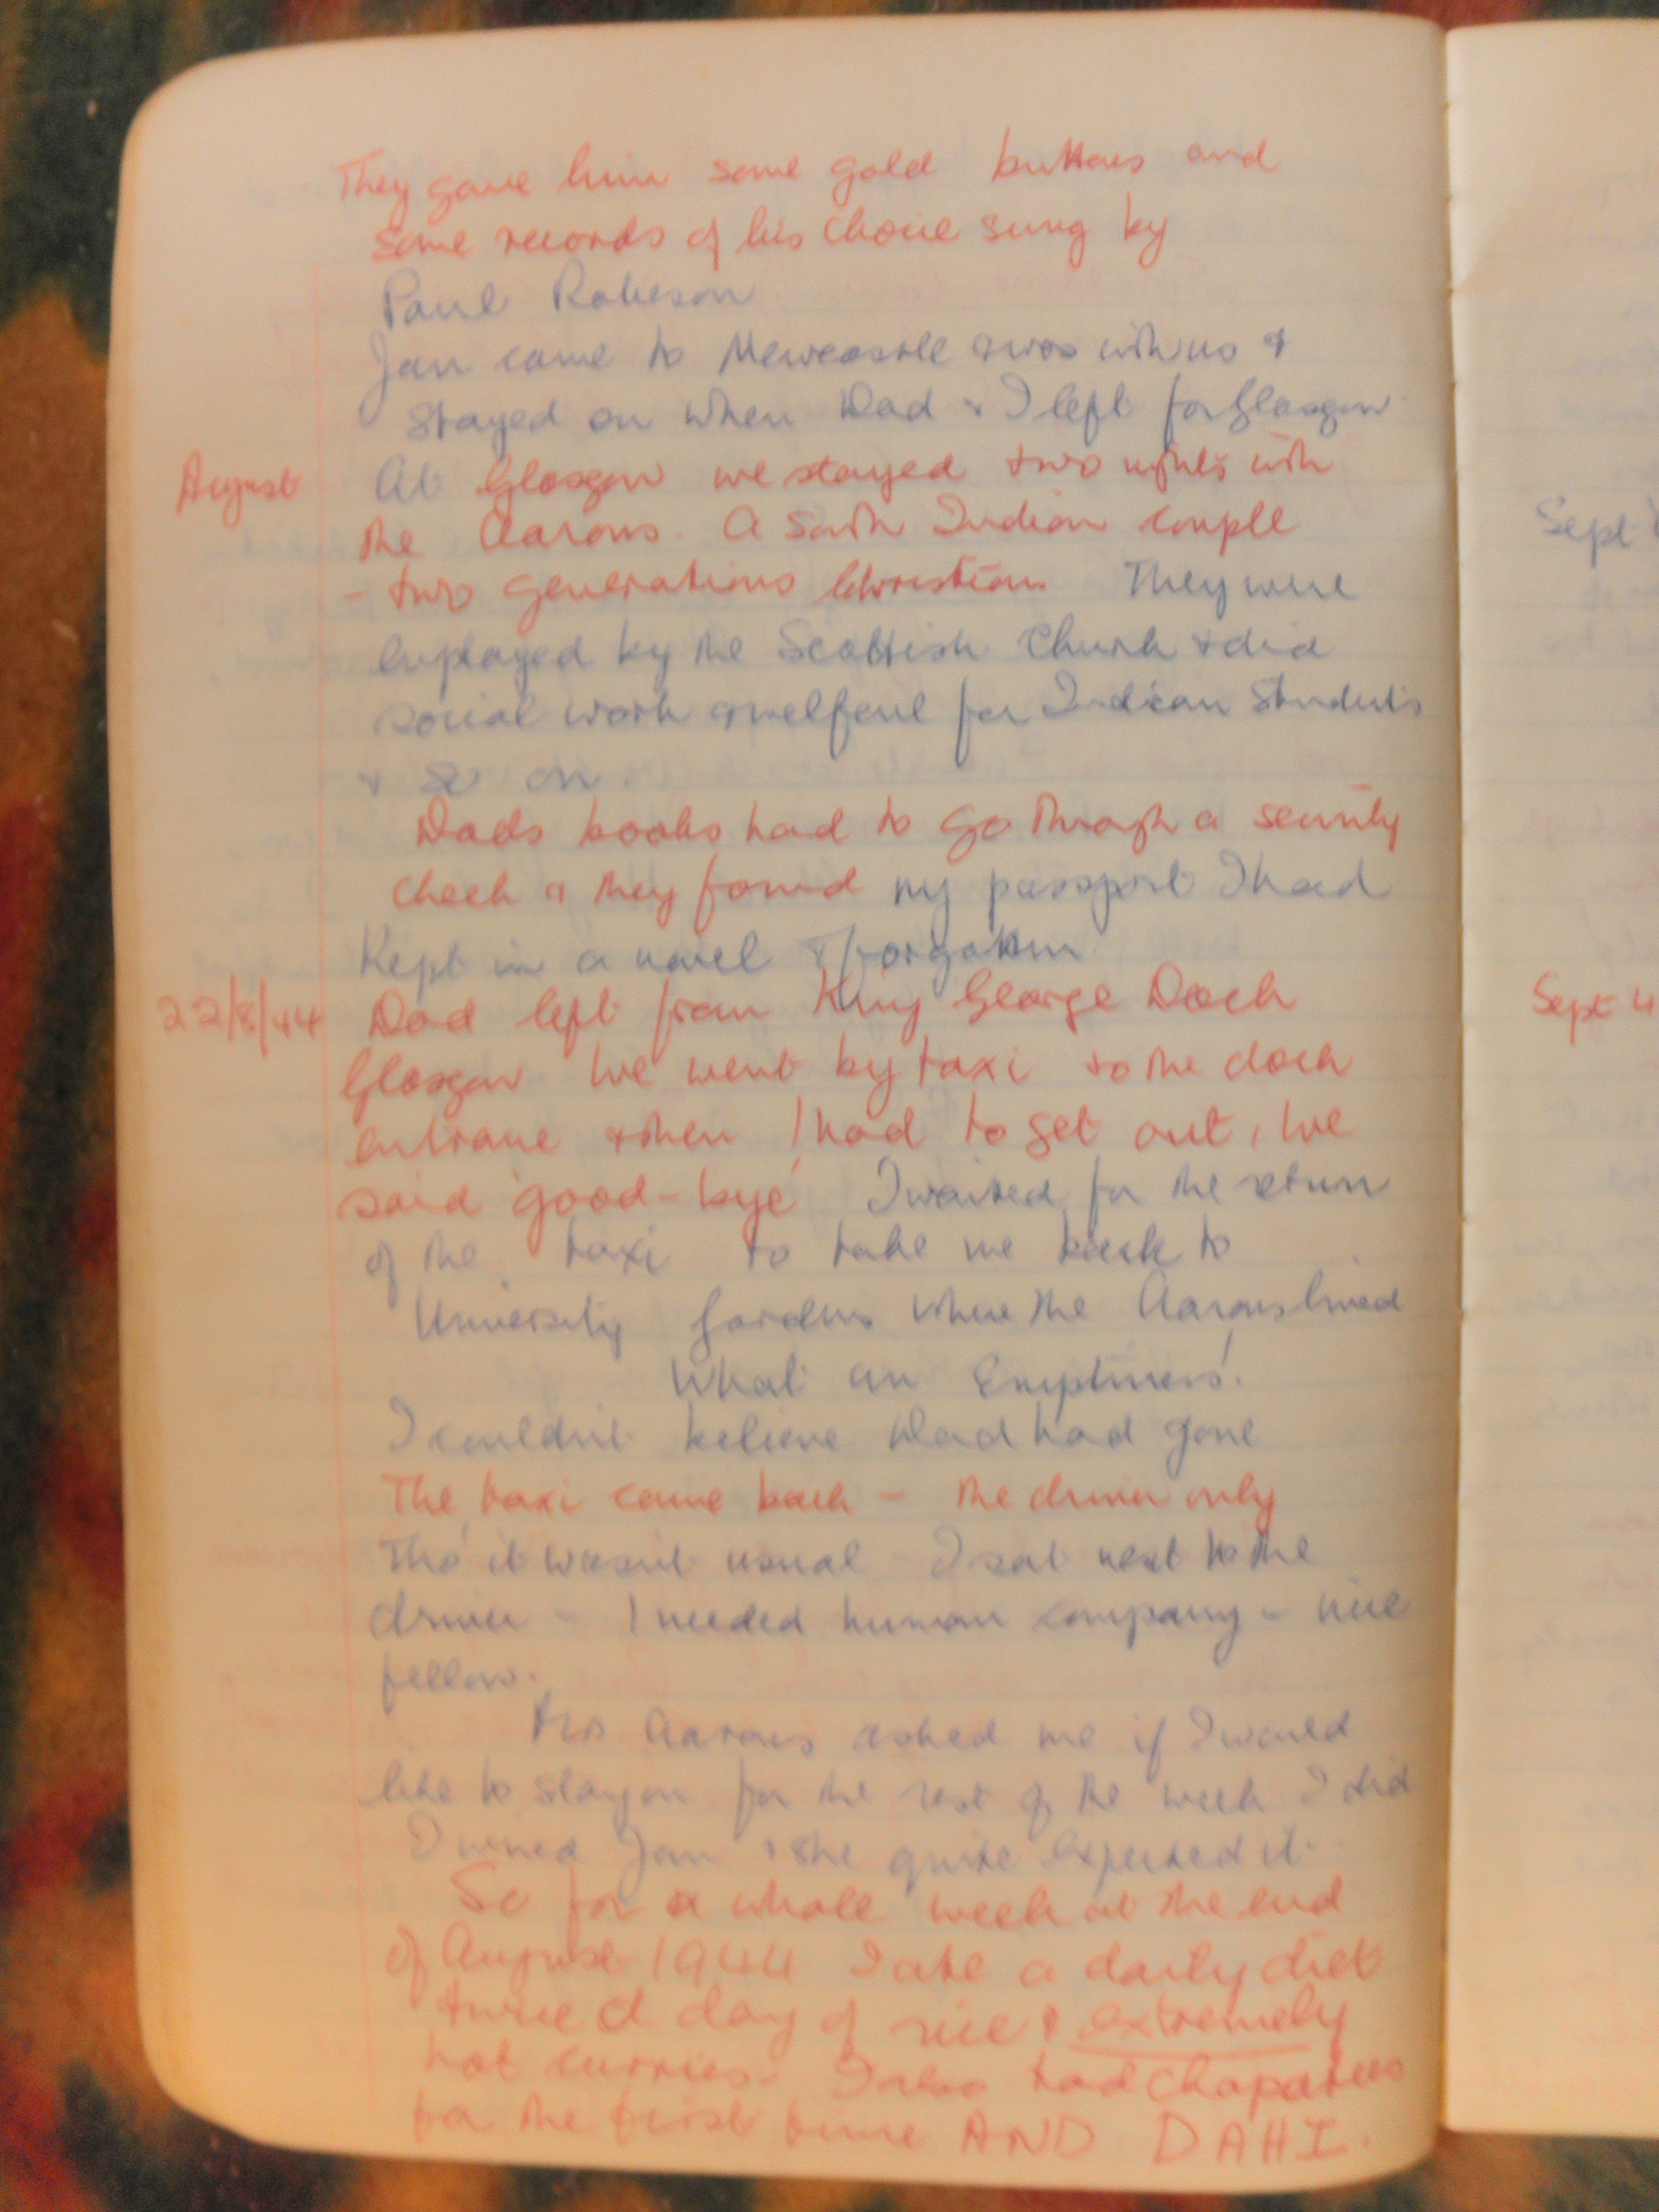 They gave him some gold buttons and
some records of his choice sung by
Paul Robeson
Jan came to Newcastle & was with us &
stayed on when Dad & I left for Glasgow
August At Glasgow we stayed two nights with
the Aarons. A South Indian couple
- two generations Christian They were
employed by the Scottish Church & did
social work & welfare for Indian Students
& so on.
Dads books had to go through a security
check & they found my passport I had
kept in a novel & forgotten.
22/8/44 Dad left from King George Dock
Glasgow. We went by taxi to the dock
entrance & then I had to get out, we
said 'good-bye' I waited for the return
of the taxi to take me back to
University Gardens where the Aarons lived
What an Emptiness!
I couldn't believe Dad had gone
The taxi came back - the driver only
Tho' it wasn't usual I sat next to the
driver - I needed human company - nice
fellow.
Mrs Aarons asked me if I would
like to stay on for the rest of the week I did
I wired Jan & she quite expected it.
So for a whole week at the end
of August 1944 I ate a daily diet
twice a day of rice & extremely
hot curries. I also had chapatees
for the first time AND DAHI.
Sept
Sept 4